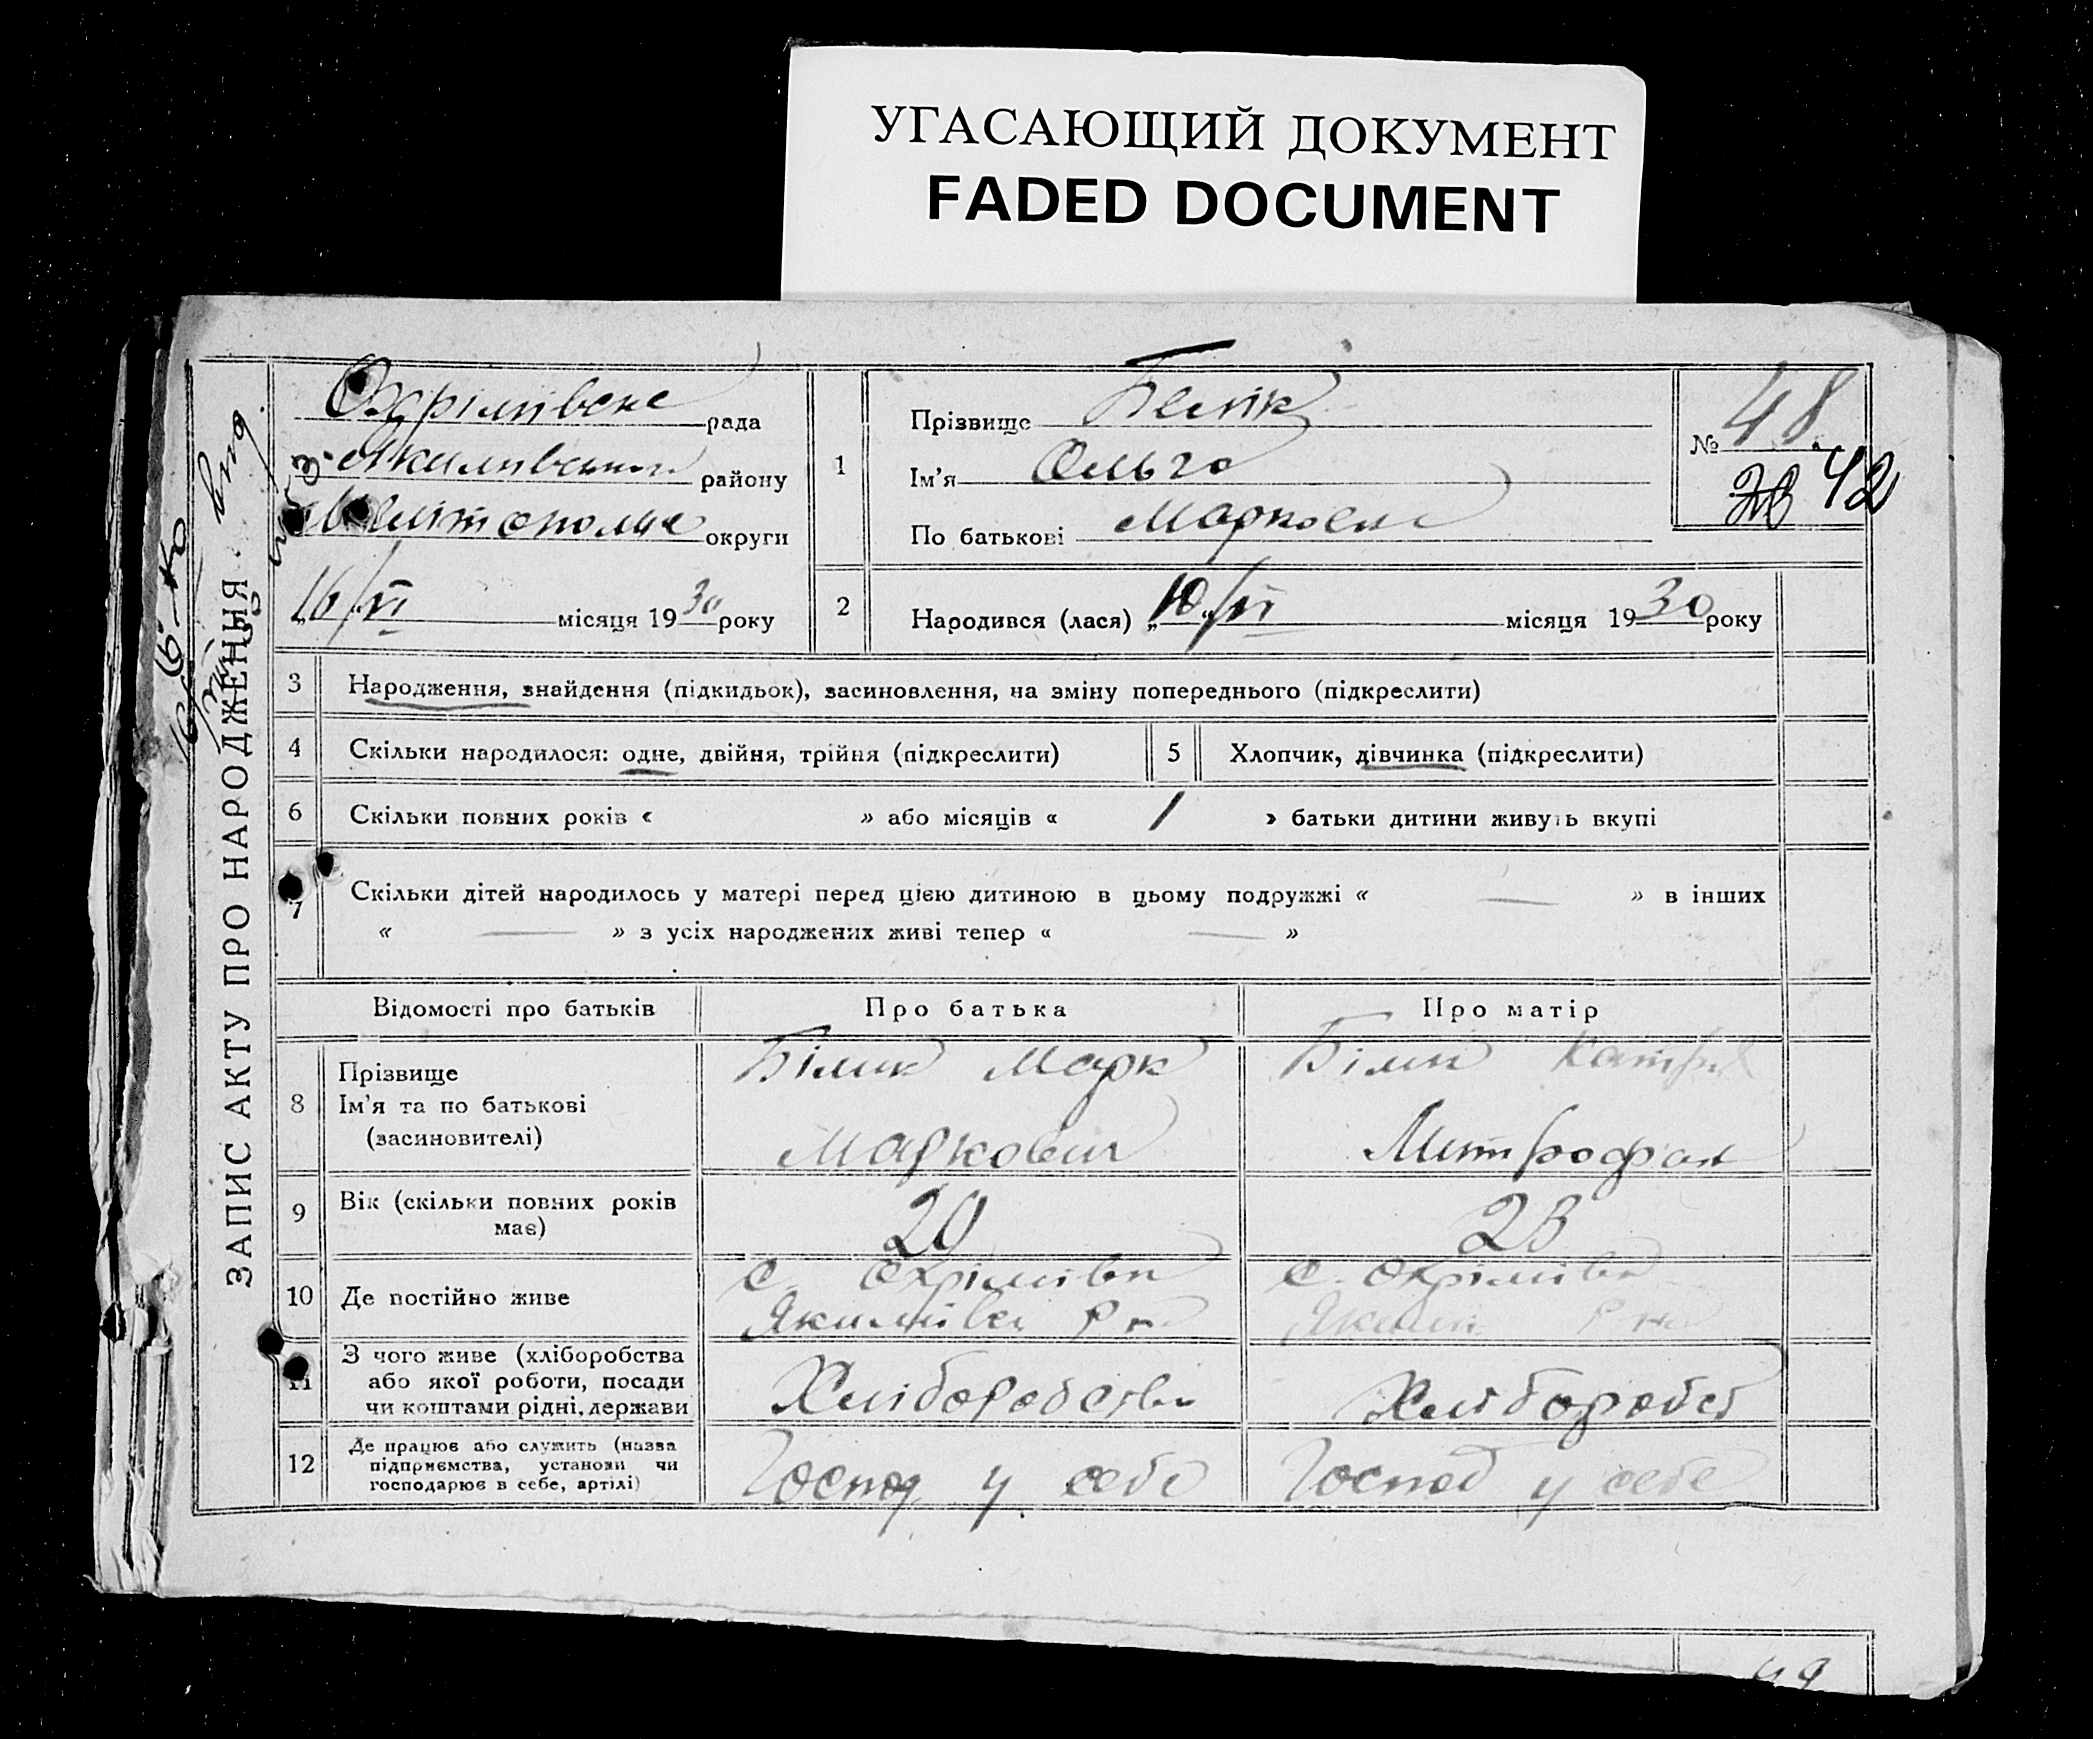 УГАСАЮЩИЙ ДОКУМЕНТ
FADED DOCUMENT
ЗАПИС АКТУ ПРО НАРОДЖЕННЯ
Охрімівське рада
Якимівського району
Мелітополь округи
16/VI місяця 1930 року
1
Прізвище Белік
Ім'я Ольга
По батькові Марковна
№ 48
42
2
Народився (лася) „10“/VI місяця 1930 року
3 Народження, знайдення (підкидьок), засиновлення, на зміну попереднього (підкреслити)
4 Скільки народилося: одне, двійня, трійня (підкреслити)
5 Хлопчик, дівчинка (підкреслити)
6 Скільки повних років « » або місяців « 1 » батьки дитини живуть вкупі
7 Скільки дітей народилось у матері перед цією дитиною в цьому подружжі « — » в інших
« — » з усіх народжених живі тепер « — »
Відомості про батьків Про батька Про матір
8 Прізвище
Ім'я та по батькові
(засиновителі)
Білик Марк
Маркович
Білик
Митрофан
9 Вік (скільки повних років
має)
20
23
10 Де постійно живе
с. Охрімівка
Якимівск Рн
с. Охрімівка
Якимів Рн
11 З чого живе (хліборобства
або якої роботи, посади
чи коштами рідні, держави
Хліборобство
Хлібороб
12 Де працює або служить (назва
підприємства, установи чи
господарює в себе, артілі)
Господ у себе
Господ у себе
49